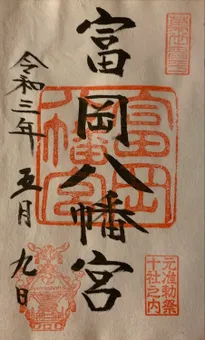 富岡八幡宮
令和三年 五月九日
富岡八幡宮
元准勅祭
十社之内